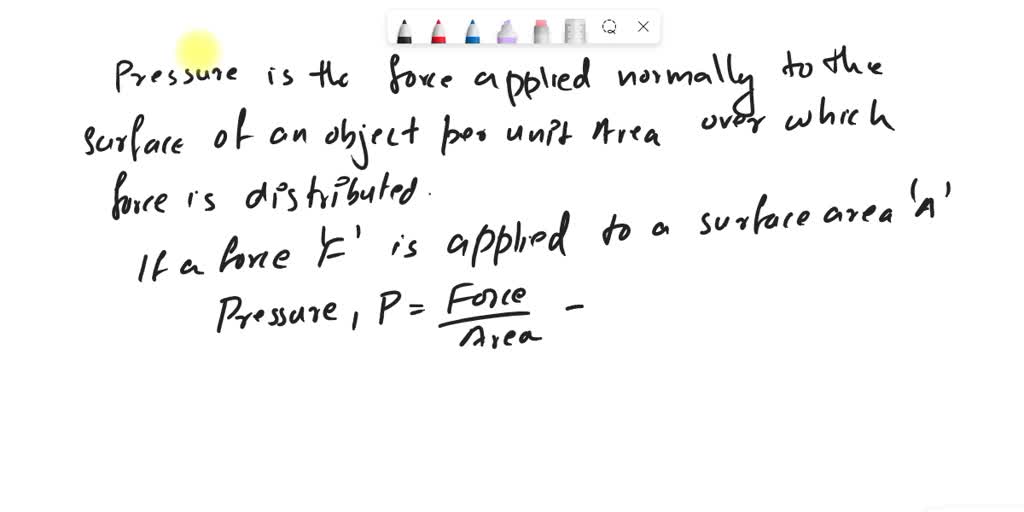 Pressure is the force applied normally to the
surface of an object per unit Area over which
force is distributed.
If a force 'F' is applied to a surface area 'A'
Pressure, P = Force / Area =